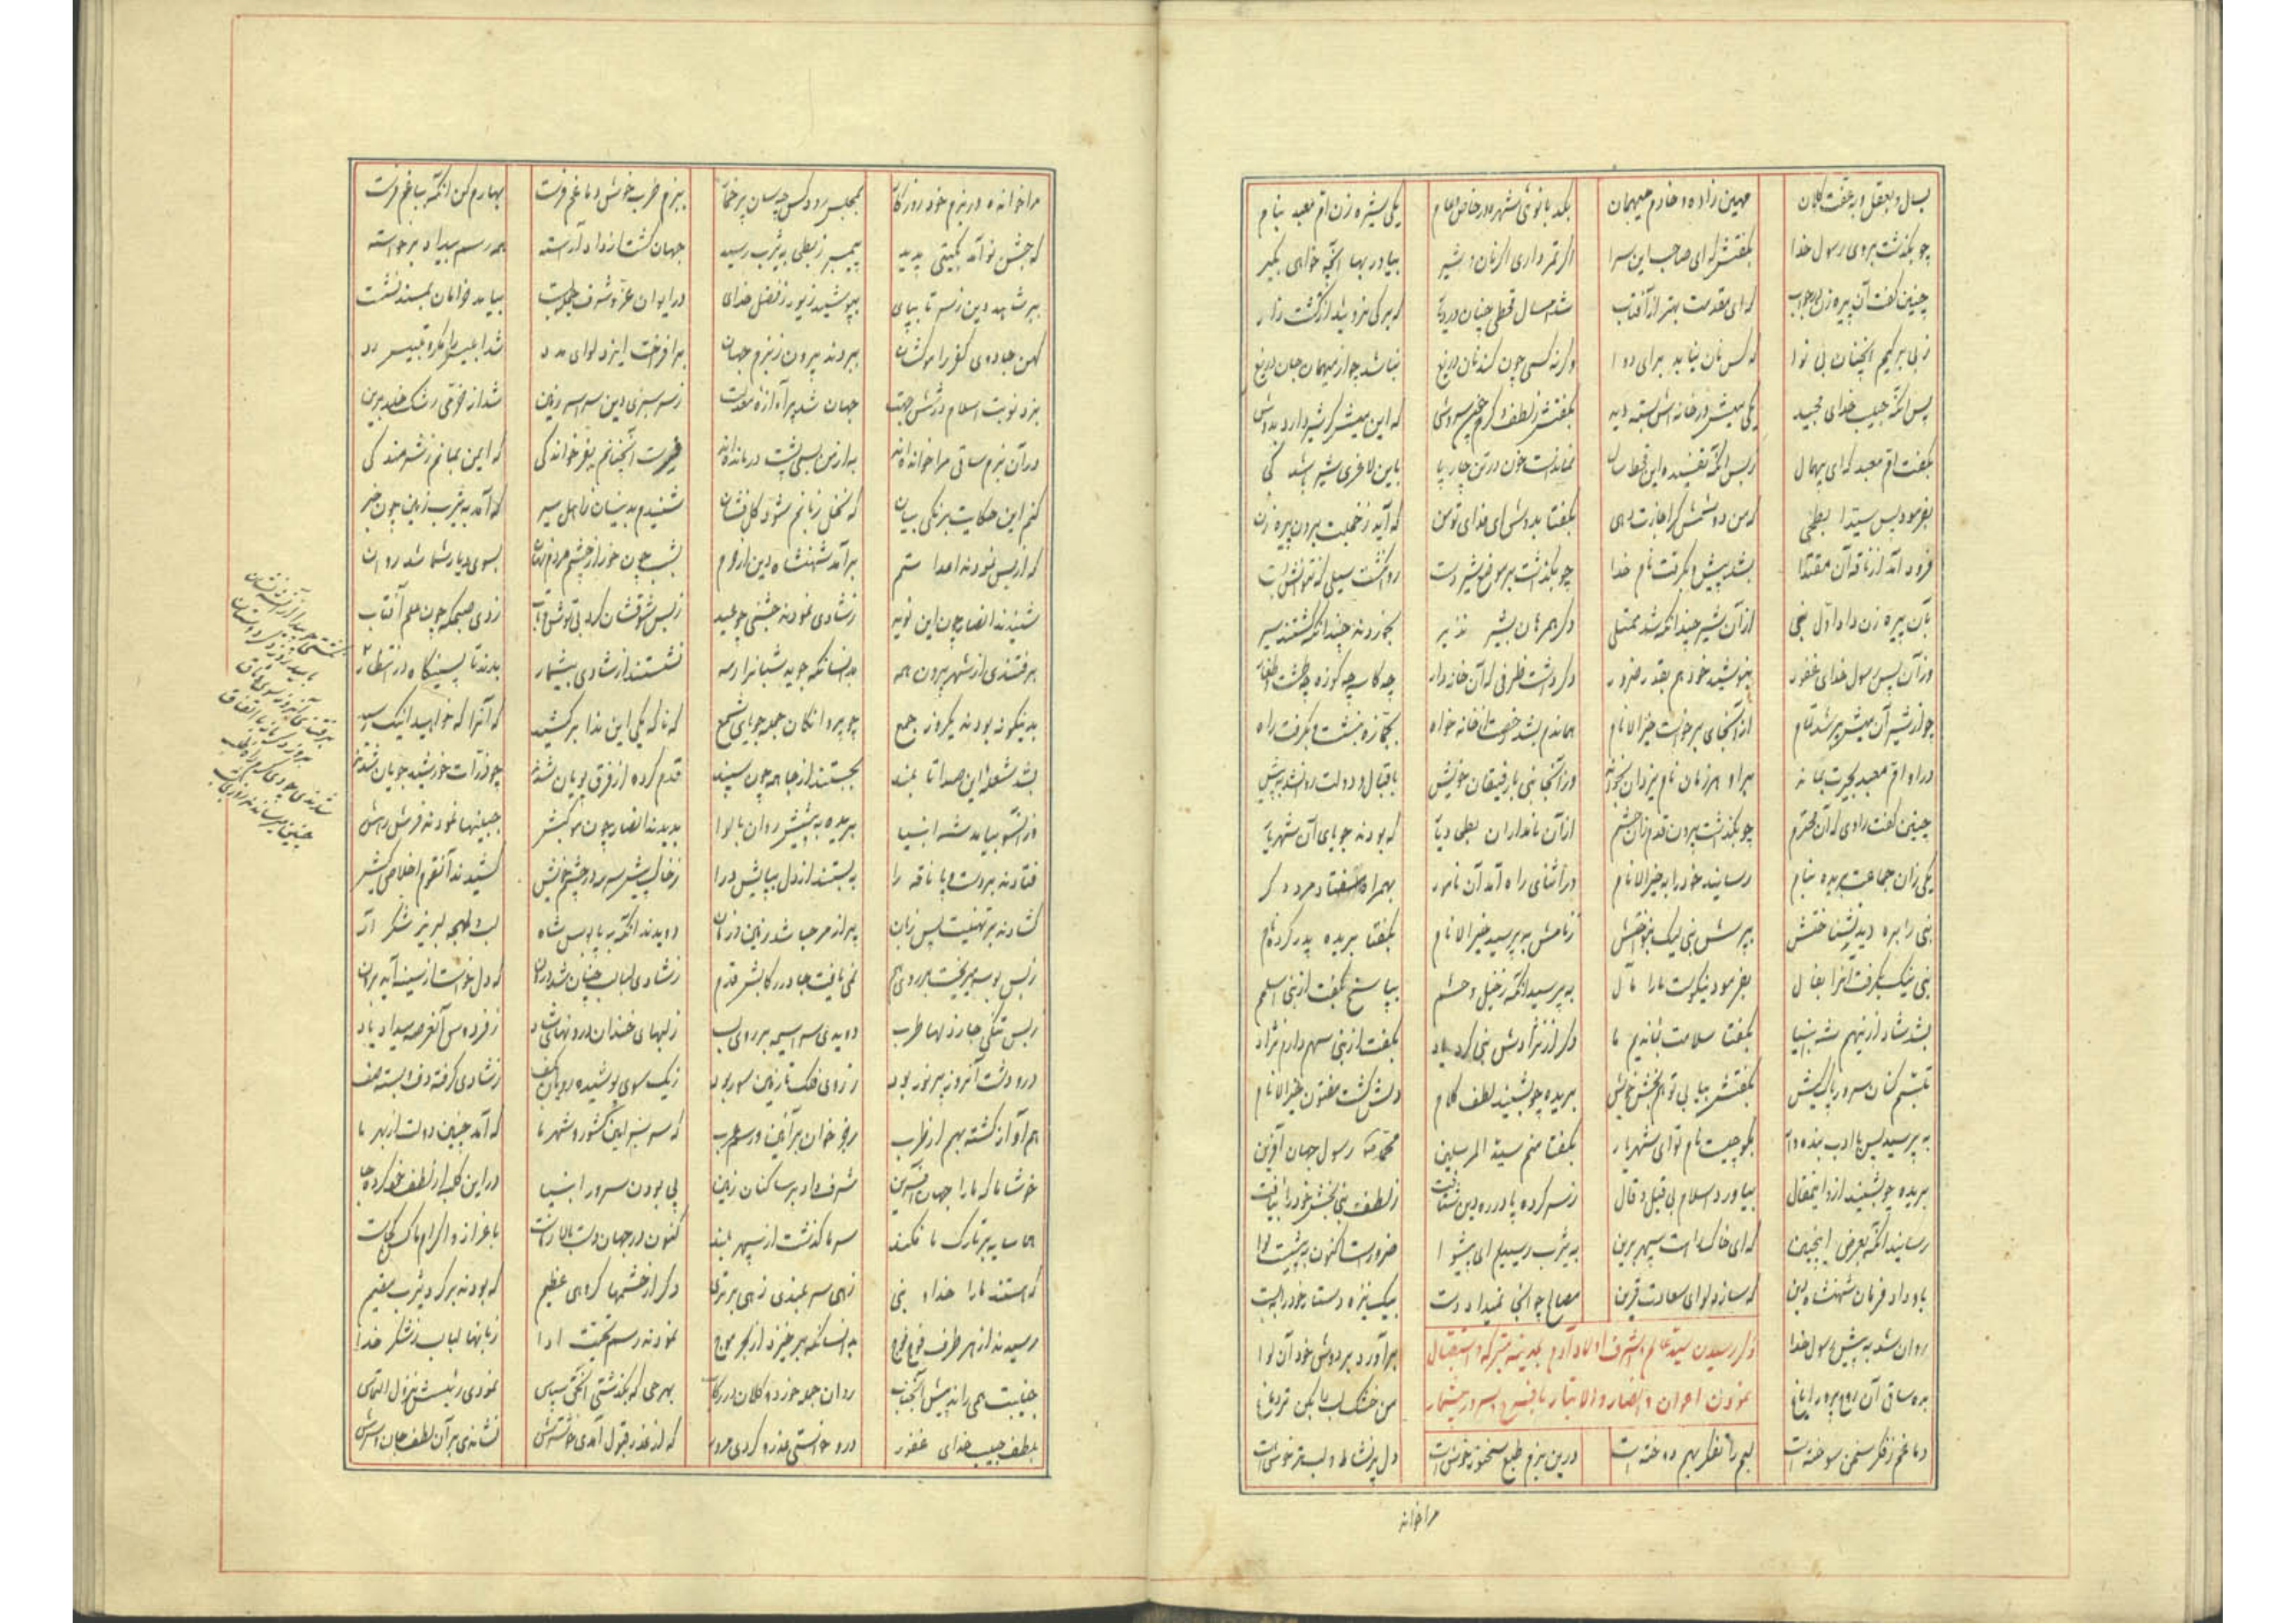 بسال و بعقل و بعفت کلان مهین زاده و خادم میهمان بکد بانوئی شهره در خاص و عام یکی شیره زن ام معبد بنام
چو بگذشت بروی رسول خدا بگفتش که ای صاحب این سرا اگر تمر داری اگر نان و شیر بیاور بها آنچه خواهی بگیر
چنین گفت آن پیره زن در جواب که ای مقدمت بهتر از آفتاب شد امسال قحطی چنان در دیار که برگی نروئید از کشت زار
ز بی برگیم آنچنان بی نوا که کس نان نیابد برای دوا وگرنه کسی چون کند نان دریغ نباشد چو از میهمان جان دریغ
پس آنگه حبیب خدای مجید یکی میش در خانه اش بسته دید بگفتش ز لطف و کرم که این میش گر شیر دارد بدوش
بگفت ام معبد که ای بهمال ز بس آنکه تفسیده این قحط سال نماندست خون در تن چارپا باین لاغری شیر باشد کی
بفرمود پس سید ابطحی که من دوشمش گر اجازت دهی بگفتا بدوش ای فدای تو من که آید ز خجلت برون پیره زن
فرود آمد از ناقه آن مقتدا بشد پیش و بگرفت نام خدا چو بگذاشت بر موضع شیر دست روان گشت سیلی که نتوانش بست
بآن پیره زن داد اول نبی از آن شیر چندانکه شد ممتلی دگر همرهان بشیر نذیر بخوردند چندانکه گشتند سیر
وزان پس رسول خدای غفور بنوشید خود هم بقدر ضرور دگر داشت ظرفی که آن خانه دار چه کاسه چه کوزه چه طشت و طغار
چو از شیر آن میش پر شد تمام از آنجای برخاست خیر الانام هماندم بشد رخصت از خانه خواه بجمازه بنشست و بگرفت راه
در او ام معبد بحیرت بماند بر او هر زمان نام یزدان بخواند وز آنجا نبی با رفیقان خویش باقبال و دولت روان شد به پیش
چنین گفت راوی که آن محترم چو بگذشت بیرون قدم زان حشم از آن نامداران بطحی دیار که بودند جویای آن شهریار
یکی زان جماعت بریده بنام رسانید خود را به خیر الانام در اثنای راه آمد آن نامور بهمراه هفتاد مرد دگر
نبی را بره دید نشناختش بپرسش نبی لیک بنواختش ز نامش بپرسید خیر الانام بگفتا بریده پدر کرده نام
نبی نیک بگرفت آنرا بفال بفرمود نیکوست ما را مآل بپرسید آنگه ز خیل و حشم بپاسخ بگفت از بنی اسلمم
بشد شاد از ینهم شه انبیا بگفتا سلامت بمانیم ما دگر از نژادش نبی کرد یاد بگفت از بنی سهم دارم نژاد
تبسم کنان سرور پاک کیش بگفتش بیابی تو هم بخش خویش بریده چو بشنید لطف کلام دلش گشت مفتون خیر الانام
بپرسید پس با ادب بگو چیست نام تو ای شهریار بگفتا منم سید المرسلین محمد رسول جهان آفرین
بریده چو بشنید ازو اینمقال بیاورد اسلام بی قیل و قال ز سر کرده پا در ره دین شتافت ز لطف نبی بخش خود را بیافت
رسانید آنگه بعرض اینچنین که ای خاک راهت سپهر برین به یثرب رسیدیم ای پیشوا ضرورست اکنون به پیشت لوا
باو داد فرمان شهنشاه دین که سازد لوای سعادت قرین مصالح چو آنجا نمیداد دست بیک نیزه دستار خود را ببست
روان شد به پیش رسول خدا برآورد بر دوش خود آن لوا
ذکر رسیدن سید عالم و اشرف اولاد آدم بمدینه متبرکه و استقبال
نمودن اعوان و انصار
بده ساقی آن روح پرور ایاغ من خشک لب را بکن تر دماغ
دماغم ز فکر سخن سوخته است لبم را تفکر بهم دوخته است درین بزم طبع سخنور خوشست دل پر نشاط و لب تر خوشست
مرا خواند
مرا خوانده در بزم خود روزگار بمجلس رود کس چه سان پر خمار ببزم طرب خوش دماغم فرست بهارم کن آنگه بباغم فرست
که جشن نو آمد بگیتی پدید پیمبر ز بطحی به یثرب رسید جهان گشت از داد آراسته همه رسم بیداد برخاسته
ببر شاهد دین ز سر تا بپای بپوشید زیور ز فضل خدای در ایوان عز و شرف جلوه بیامد خرامان بمسند نشست
کهن جادوی کفر را موکشان ببردند بیرون ز بزم جهان برافراخت ایزد لوای مدد شد ابلیس را مکر و تلبیس رد
بزد نوبت اسلام در شش جهت جهان شد پر آوازه معدلت ز سرسبزی دین سراسر زمین شد از خرمی رشک خلد برین
در آن بزم ساقی مرا خوانده‌اند به از من بسی پشت در مانده‌اند که ایمن بمانم ز شرمندگی
کنم این حکایت برنگی بیان که نخل زبانم شود گل فشان شنیدم بدینسان ز اهل سیر که آمد به یثرب زمین چون خبر
که از بس نمودند اعدا ستم برآمد شهنشاه دین از حرم بشب چون خور از چشم مردم نهان بسوی دیار شما شد روان
شنیدند انصار چون این نوید ز شادی نمودند جشنی چو عید ز بس شوقشان کرد بی توش و تاب زدی صبحگه چون علم آفتاب
برفتندی از شهر بیرون همه بدانسانکه جوید شبانرا رمه نشستند از شادی بیشمار بدندی تا پسینگاه در انتظار
بدینگونه بودند یکروز جمع چو پروانگان جمله جویای شمع که ناگه یکی این ندا برکشید که آنرا که خواهید اینک رسید
بشد شعله این صدا تا بلند بجستند از جا همه چون سپند قدم کرده از فرق پویان شدند چو ذرات خورشید جویان شدند
وز آنسو بیامد شه انبیا بریده به پیشش روان با لوا بدیدند انصار چون موکبش جبینها نمودند فرش رهش
فتادند بر دست و پا ناقه را به بستند از دل بپایش درا ز خاک پیش سرمه در چشم خویش کشیدند آنقوم اخلاص کیش
گشادند بر تهنیت پس زبان پر از مرحبا شد زمین و زمان دویدند آنگه به پابوس شاه لب و لهجه لبریز شکر اله
ز بس بوسه میریخت بر روی هم نمی یافت جا در رکابش قدم ز شادی لبالب چنان شد روان که دل خواست از سینه آید برون
ز بس تنگی جا ز دلها طرب دویدی سراسیمه بر روی لب ز لبهای خندان و رونهای شاد ز فردوس آنعرصه میداد یاد
در و دشت آنروز پر نور بود ز روی فلک تا زمین سور بود ز یک سوی پوشیده رویان ز شادی گرفته دف و بسته صف
هم آواز گشته بهم از طرب رجز خوان بر آئین و رسم عرب که سر سبز این کشور و شهر ما که آمد چنین دولت از بهر ما
خوشا ما که ما را جهان آفرین شرف داد بر ساکنان زمین پی بودن سرور انبیا در این کلبه از لطف خود کرده جا
هما سایه بر تارک ما فکند سر ما گذشت از سپهر بلند کنون در جهان دست بالا ز ماست باعزاز و اکرام ما کس کجاست
که هستند ما را خدا و نبی زهی سربلندی زهی برتری دگر از حشمها گروهی عظیم که بودند بر گرد یثرب مقیم
رسیدند از هر طرف فوج فوج بدانسانکه برخیزد از بحر موج نمودند رسم تحیت ادا زبانها لبالب ز شکر خدا
جنیبت همی راند پیش آنجناب روان جمله خورد و کلان در رکاب بهر حی که بگذشتی آنحق سپاس نمودی رئیسش نزول التماس
بلطف حبیب خدای غفور درو خواستی عذر و کردی مرور که از عذر قبول آمدی خوشترش نشاندی بر آن لطف جان و سرش